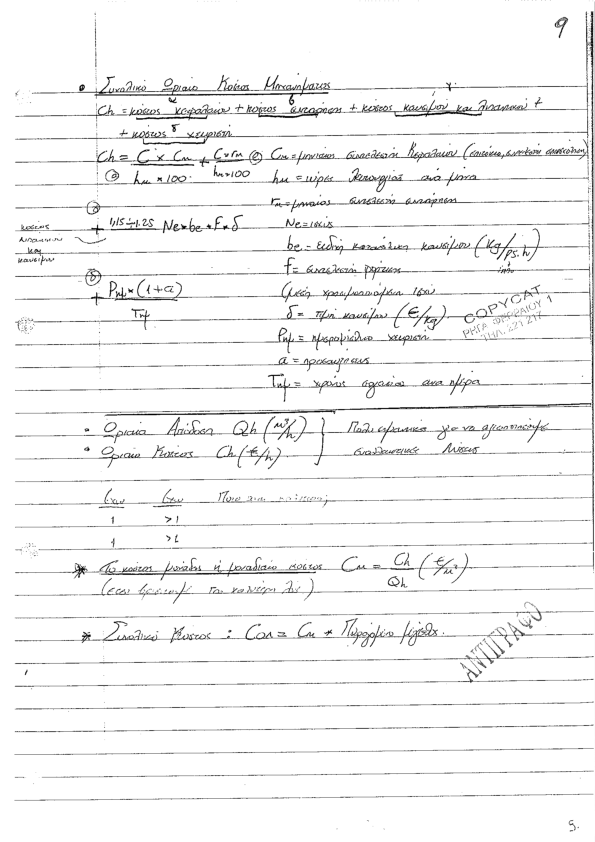 9
• Συνολικό Ωριαίο Κόστος Μηχανήματος
α β γ
Ch = κόστος κεφαλαίου + κόστος συντήρησης + κόστος καυσίμου και λιπαντικού +
+ κόστος δ χειριστή
Ch = C × Cm / hm × 100 + C × rm / hm × 100
Cm = μηνιαίος συντελεστής Κεφαλαίου
hm = ώρες λειτουργίας ανά μήνα
rm = μηνιαίος συντελεστής συντήρησης
κόστος λιπαντικού και καυσίμου
+ 1,15 ÷ 1.25 Ne * be * f * δ
Ne = ισχύς
be = ειδική κατανάλωση καυσίμου (kg/ps.h)
f = συντελεστή φόρτισης
+ Pημ * (1+α) / Tημ
(μέση χρησιμοποιούμενη ισχύ
δ = τιμή καυσίμου (€/kg)
Pημ = ημερομίσθιο χειριστή
α = προσαυξήσεις
Tημ = χρόνος εργασίας ανα ημέρα
COPYCAT
ΡΗΓΑ ΦΕΡΡΑΙΟΥ 1
ΤΗΛ. 221 217
• Ωριαία Απόδοση Qh (m³/h)
• Ωριαίο Κόστος Ch (€/h)
Πολύ σημαντικά για να αξιοποιήσουμε
εναλλακτικές λύσεις
1 >1
1 >1
* Το κόστος μονάδος ή μοναδιαίο κόστος Cm = Ch / Qh (€/m³)
(έτσι βρίσκουμε την καλύτερη λύση)
* Συνολικό Κόστος : Cολ = Cm * Παραγόμενο μέγεθος.
ΑΝΤΙΓΡΑΦΟ
5.